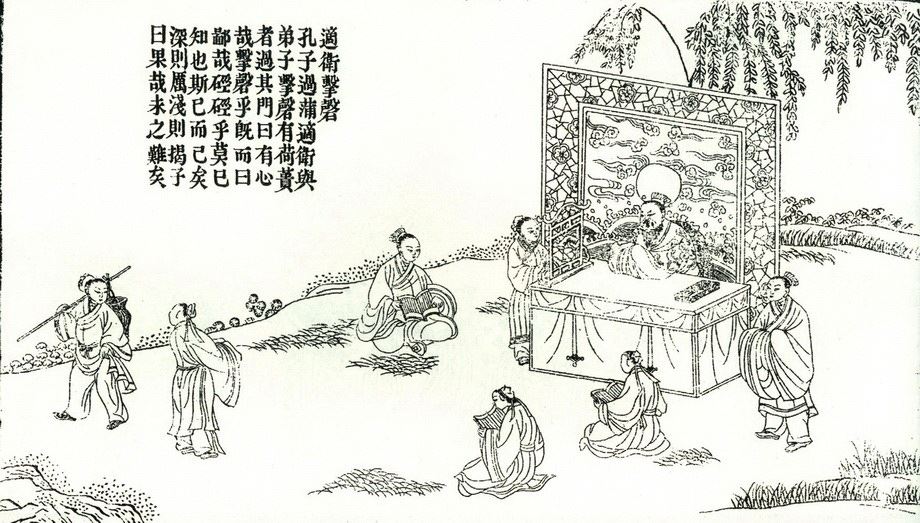 適衛擊磬
孔子過蒲適衛與
弟子擊磬有荷蕢
者過其門曰有心
哉擊磬乎既而曰
鄙哉硜硜乎莫已
知也斯已而已矣
深則厲淺則揭子
曰果哉末之難矣